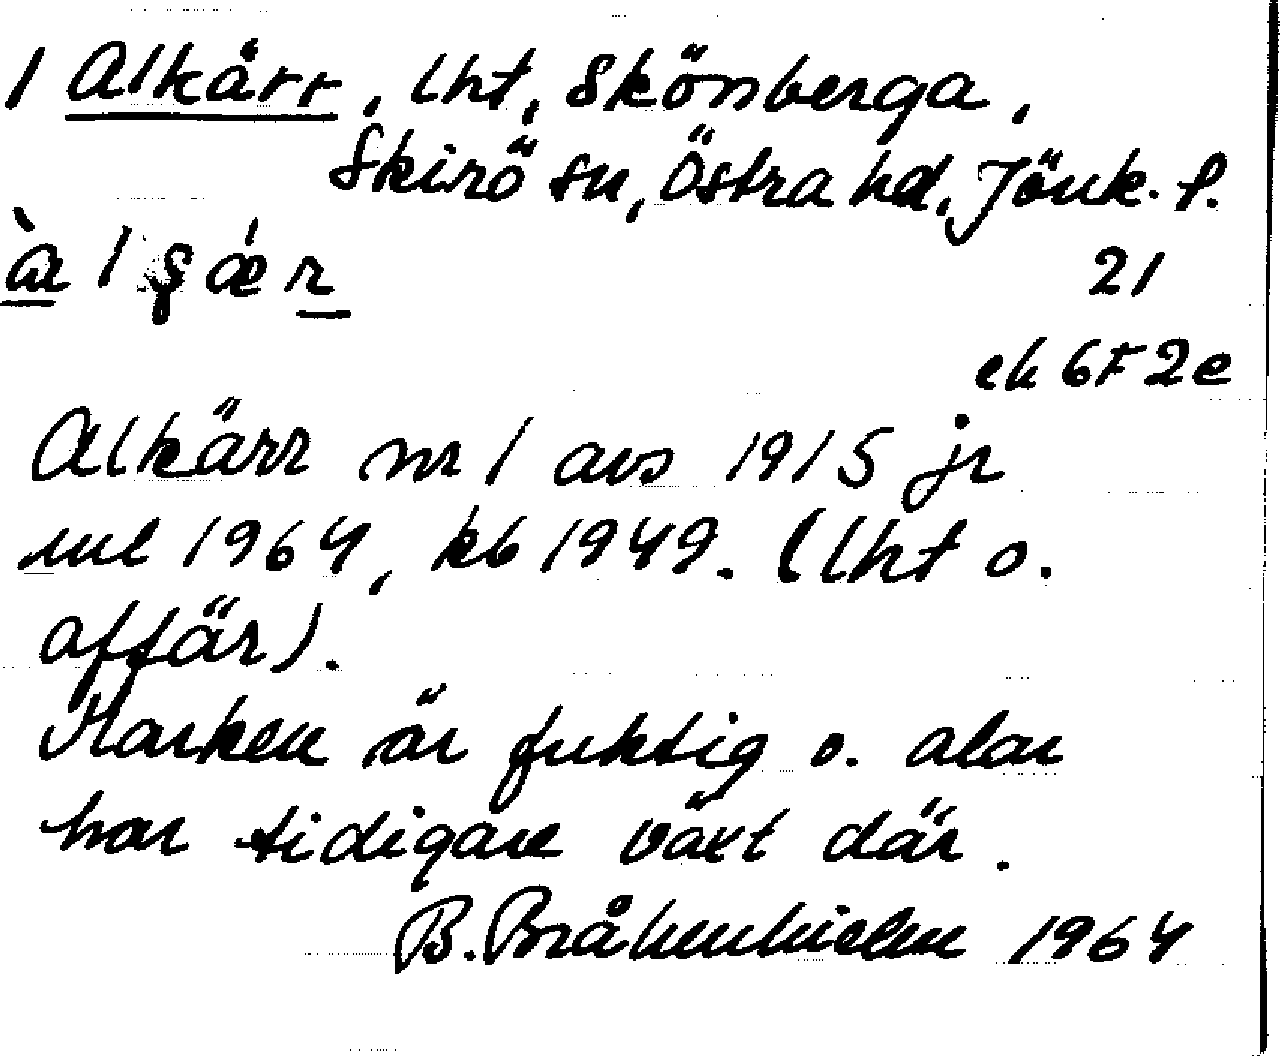 1 Alkärr, lht, Skönberga,
Skirö sn, Östra hd, Jönk. l.
àlʂǽr 21
ek 6F2e
Alkärr nr 1 avs 1915 jr
uul 1964, kb 1949. (lht o.
affär).
Marken är fuktig o. alar
har tidigare växt där.
B. Bråkenhielm 1964